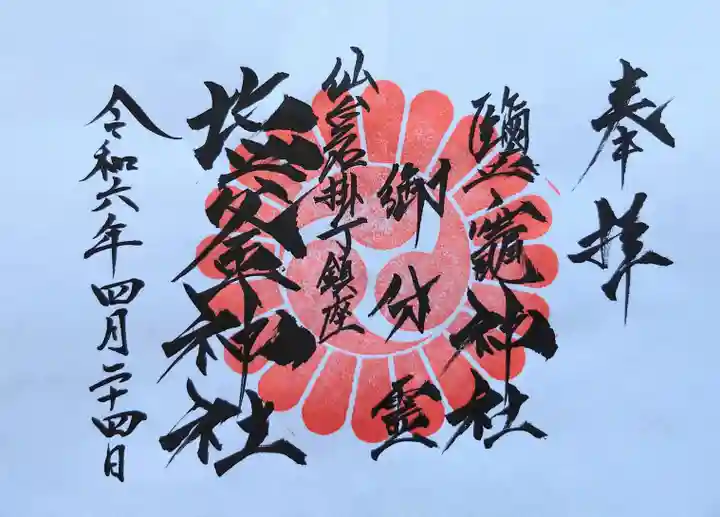 奉拝
鹽竈神社
御分霊
仙台名掛丁鎮座
塩釜神社
令和六年四月二十四日